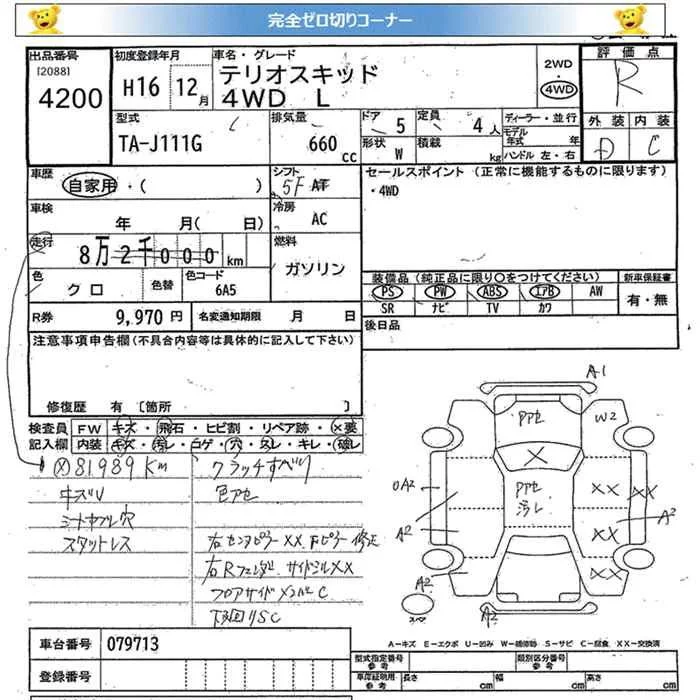 完全ゼロ切りコーナー
出品番号 初度登録年月 車名・グレード 評価点
[2088]
4200 H16 12月 テリオスキッド 2WD R
4WD L 4WD
型式 排気量 ドア 定員 ディーラー・並行 外装 内装
TA-J111G 660cc 5 4人 モデル年式 年 D C
形状 W 積載 kg ハンドル 左・右
車歴 シフト セールスポイント (正常に機能するものに限ります)
自家用・( ) 5F AT ・4WD
車検 冷房
年 月( 日) AC
走行 燃料
8万2千000km ガソリン
色 色替 色コード 装備品 (純正品に限り〇をつけてください) 新車保証書
クロ 6A5 PS PW ABS エアB AW 有・無
SR ナビ TV カワ
R券 9,970円 名変通知期限 月 日 後日品
注意事項申告欄(不具合内容等は具体的に記入して下さい)
修復歴 有 [箇所 ]
検査員 FW キズ・飛石・ヒビ割・リペア跡・X要
記入欄 内装 キズ・汚レ・コゲ・穴・スレ・キレ・破レ
A1
PPセ W2
X
UA2 PPセ 汚レ XX XX
A2 XX A2
A2 XX
スペア A2
(X)81989km クラッチすべり
キズU 色アセ
シートカブレ穴
スタットレス 右センタピラーXX Fピラー修正
右Rフェンダー サイドシルXX
フロアサイドメンバーC
下廻りSC
A－キズ E－エクボ U－凹み W－補修跡 S－サビ C－腐食 XX－交換済
車台番号 079713
登録番号
型式指定番号 参考 類別区分番号 参考
車庫証明用 参考 長さ cm 幅 cm 高さ cm